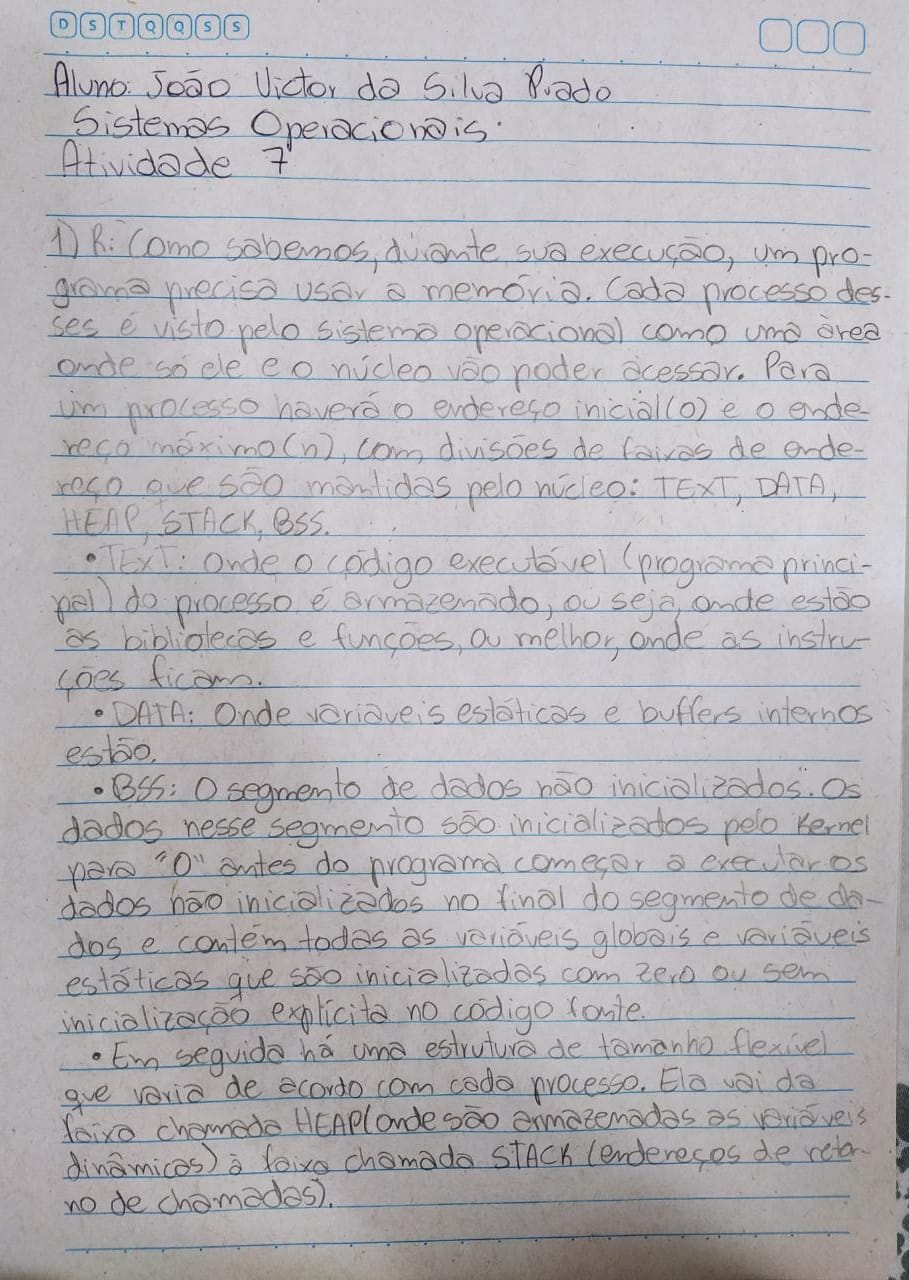 D S T Q Q S S
Aluno: João Victor da Silva Prado
Sistemas Operacionais.
Atividade 7
1) R: Como sabemos, durante sua execução, um pro-
grama precisa usar a memória. Cada processo des-
ses é visto pelo sistema operacional como uma área
onde só ele e o núcleo vão poder acessar. Para
um processo haverá o endereço inicial (0) e o ende-
reço máximo (n), com divisões de faixas de ende-
reço que são mantidas pelo núcleo: TEXT, DATA,
HEAP, STACK, BSS.
• TEXT: Onde o código executável (programa princi-
pal) do processo é armazenado, ou seja, onde estão
as bibliotecas e funções, ou melhor, onde as instru-
ções ficam.
• DATA: Onde variáveis estáticas e buffers internos
estão.
• BSS: O segmento de dados não inicializados. Os
dados nesse segmento são inicializados pelo Kernel
para "0" antes do programa começar a executar os
dados não inicializados no final do segmento de da-
dos e contém todas as variáveis globais e variáveis
estáticas que são inicializadas com zero ou sem
inicialização explícita no código fonte.
• Em seguida há uma estrutura de tamanho flexível
que varia de acordo com cada processo. Ela vai da
faixa chamada HEAP (onde são armazenadas as variáveis
dinâmicas) à faixa chamada STACK (endereços de retor-
no de chamadas).